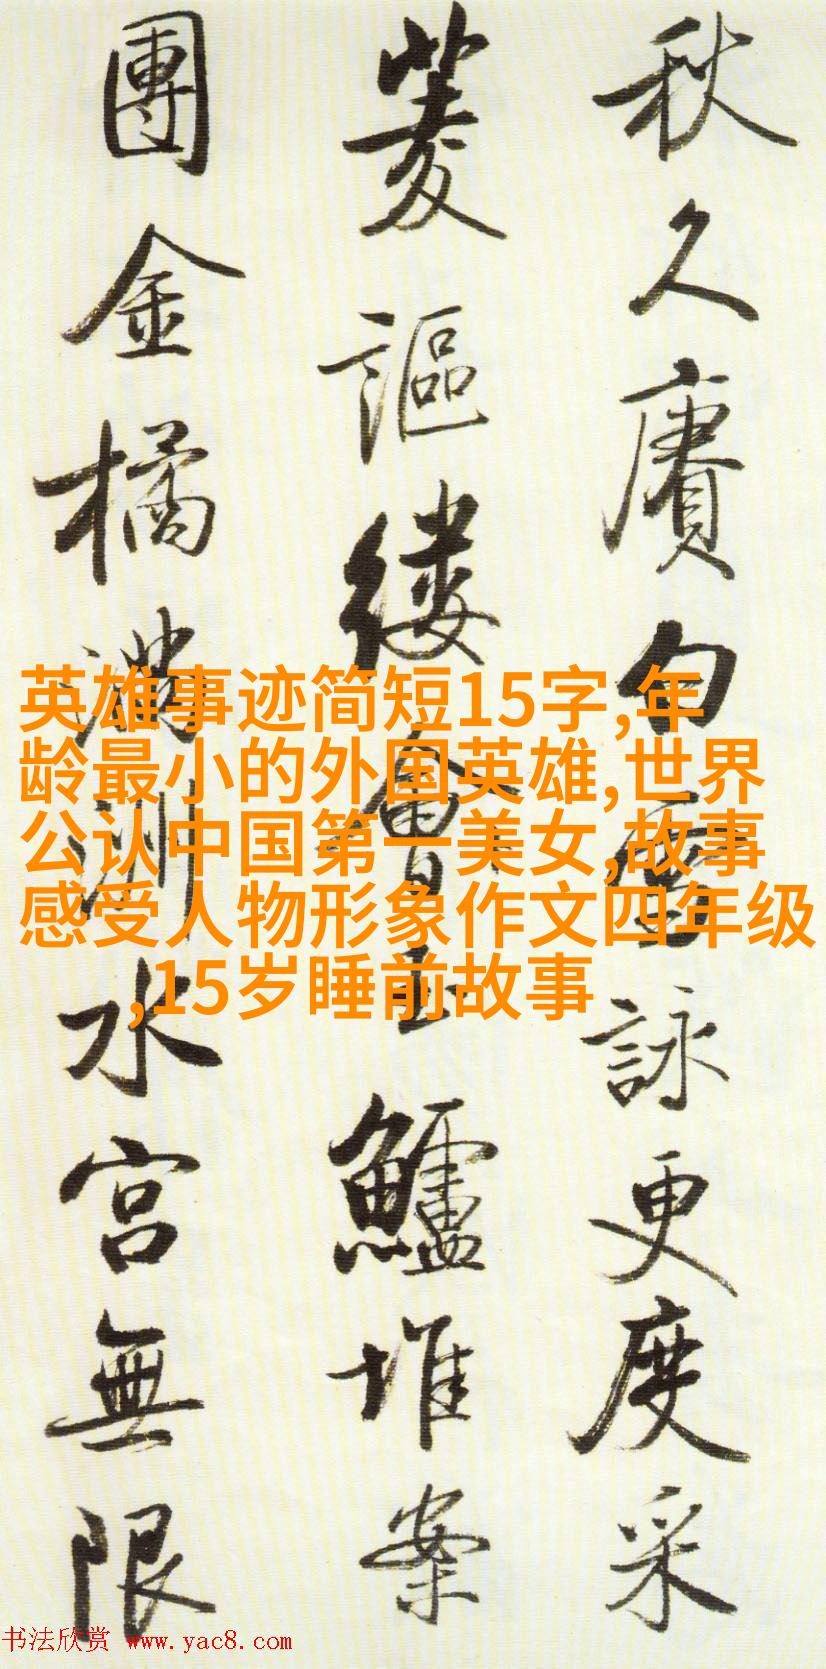 秋久賡白雪詠更度采
菱謳縷會玉鱸堆案
團金橘滿洲水宮無限
英雄事迹简短15字,年
龄最小的外国英雄,世界
公认中国第一美女,故事
感受人物形象作文四年级
,15岁睡前故事
书法欣赏 www.yac8.com